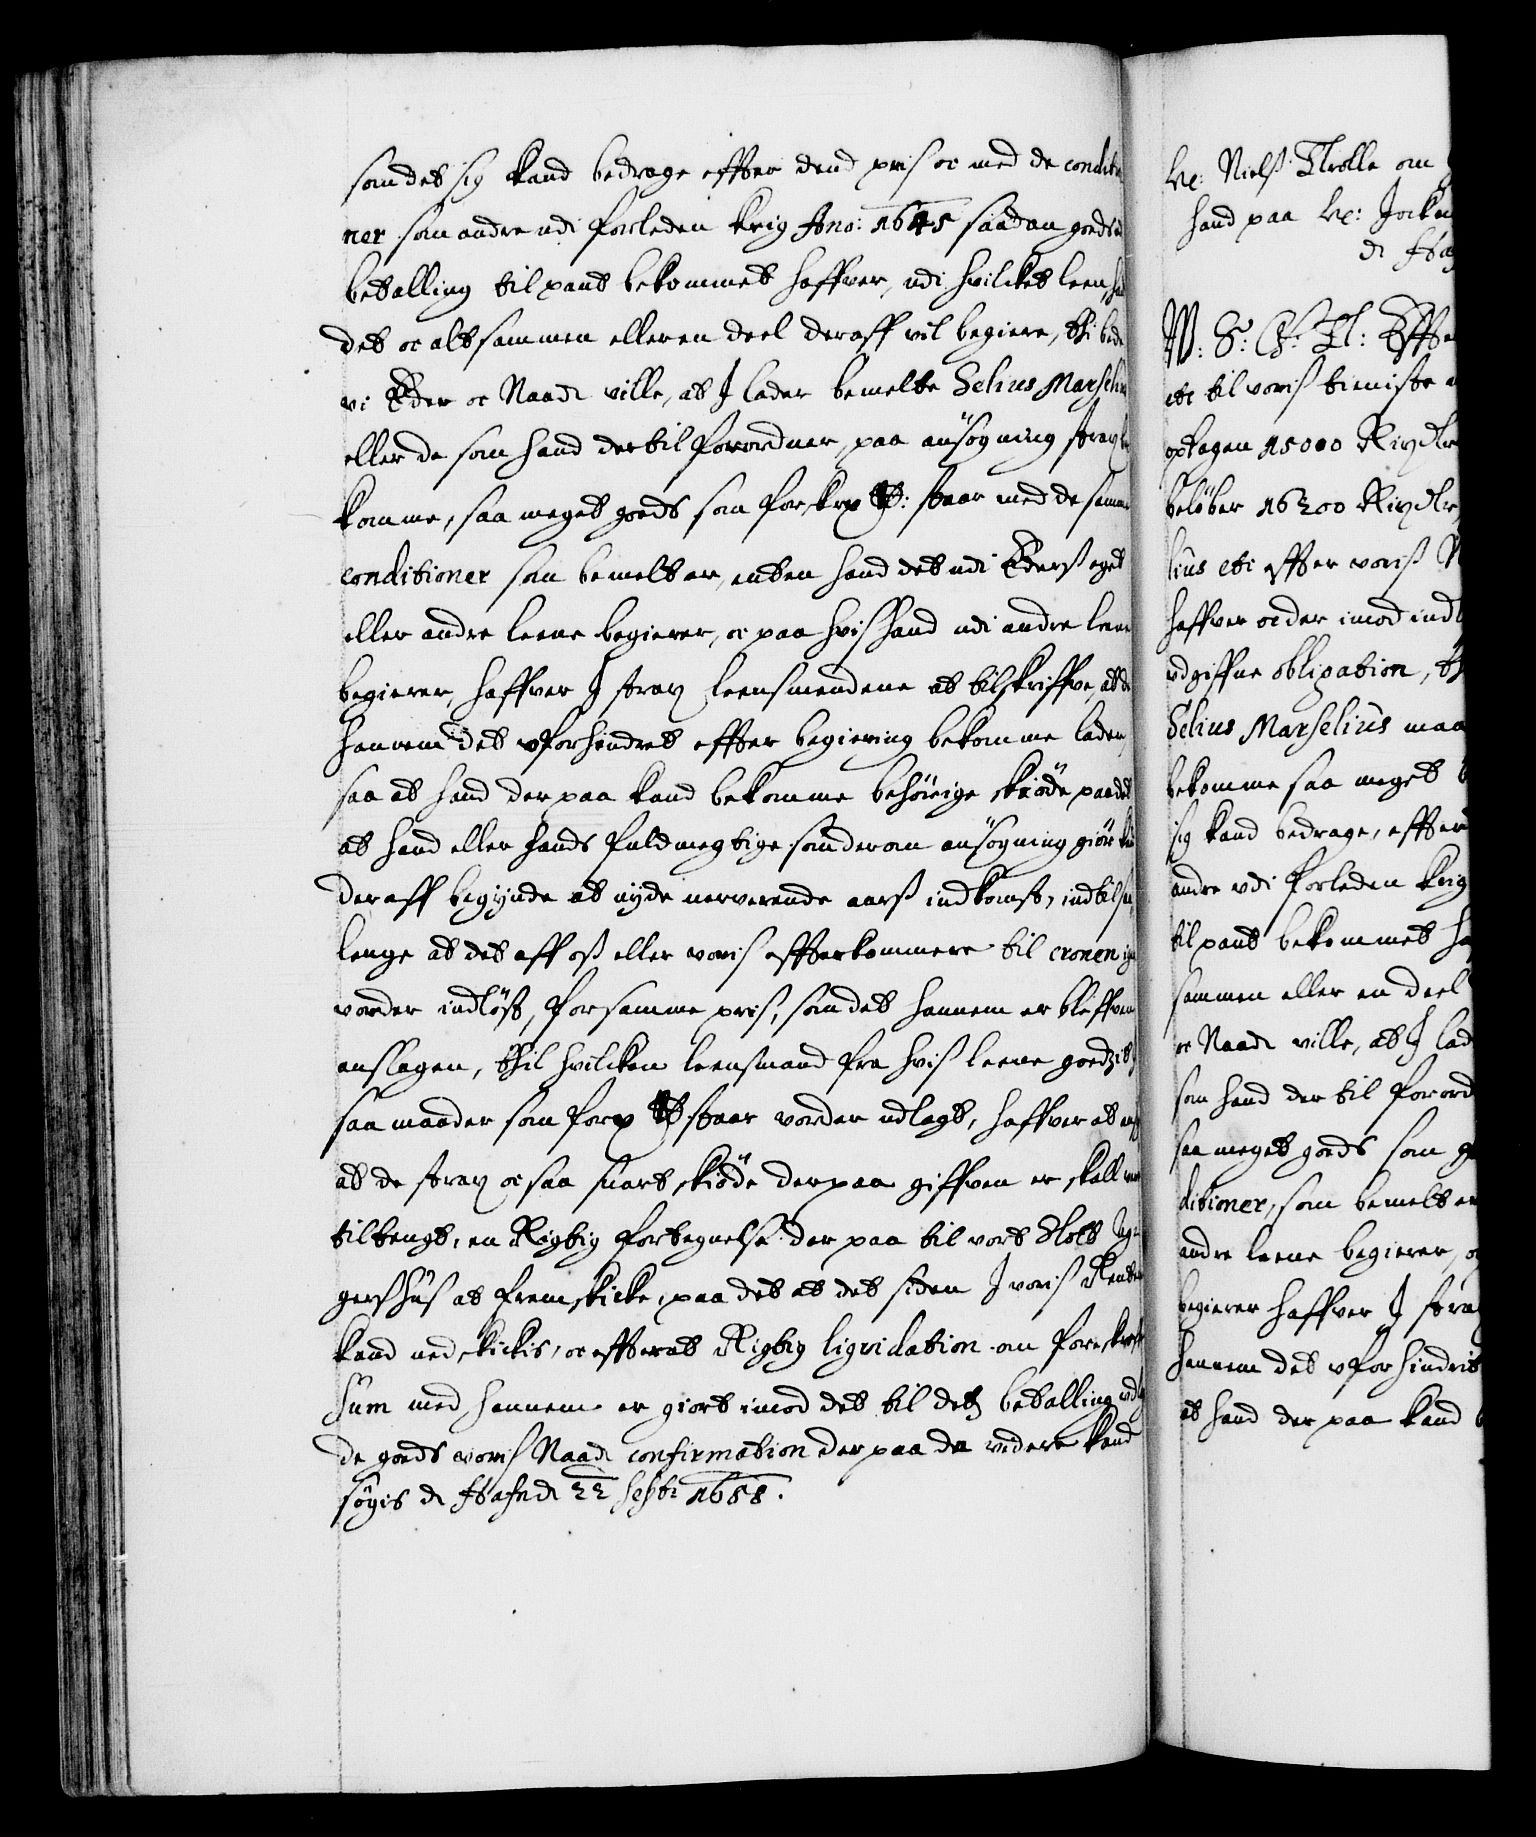 som det sig kand bedrage effter dend pris oc med de conditio
ner som andre udi forleden krig Ano: 1645 saadan goeds
betalling til pant bekommet haffver, udi hvilcket leen
det oc altsammen eller en deel deraff vil begiere, thi bede
vi Eder oc Naad. ville, at J lader bemelte Selius Marseli
eller de som hand der til forordner, paa ansøgning strax
komme, saa meget goeds som for staar med de samme
conditioner som bemelt er, enten hand det udi Eders eget
eller andre leene begierer, oc paa hvis hand udi andre leene
begierer, haffver J strax leensmendene at tilskriffve, at de
hannem det uforhindret effter begiering bekomme lader,
saa at hand der paa kand bekomme behörige skiöde paa det
at hand eller hands fuldmegtige som derom ansøgning giör
der aff begynde at nyde nerverende aars indkomst, indtil saa
lenge at det aff oss eller voris effterkommere til cronen
vorder indløst, for samme pris, som det hannem er bleffven
anslagen, Til hvilcken leensmand fra hvis leene goedzit
saa maader som for staar vorder udlagt, haffver at
at de strax oc saa snart skiöde der paa giffven er skall
tiltengt, en Rigtig fortegnelse der paa til vort Slott
gershus at fremskicke, paa det at det siden J voris Rente
kand nedskickis, oc effter at Rigtig liqvidation om
Sum med hannem er giort imod det til dets betalling
de goeds voris Naad. confirmation der paa de videre kand
søgis d. Hafnd. 22 Septr. 1655.
Nielß Trolle om
hand paa
d. Haf
W: S: G: T: Effter
etc til voris tieniste
optagen 15000 Rixdlr
beløber 16200 Rixdlr
lius etc effter voris
haffver oc der imod ind
udgiffne obligation,
Selius Marselius maa
bekomme saa meget
sig kand bedrage, effter
andre udi forleden krig
til pant bekommet
sammen eller en deel
oc Naad. ville, at J lad
som hand der til forord
saa meget goeds som
ditioner, som bemelt er
andre leene begierer,
begierer haffver J strax
hannem det uforhindrit
at hand der paa kand